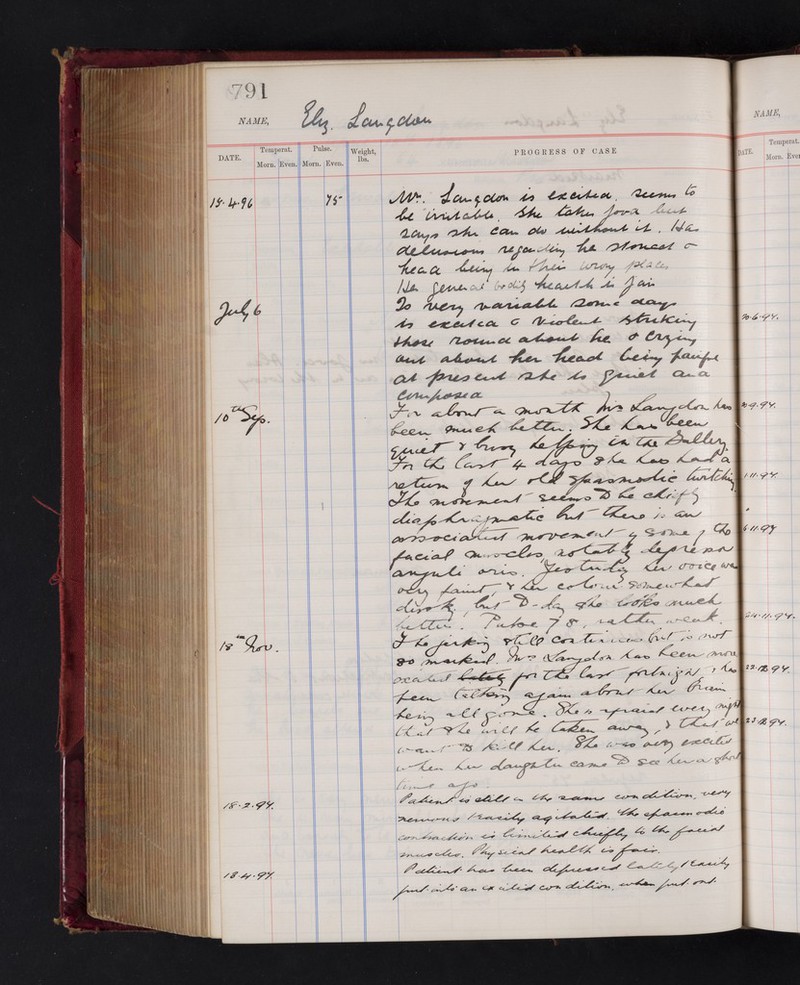 791
NAME, Elz. Langdon
DATE. Temperat. Morn. Even. Pulse. Morn. Even. Weight, lbs. PROGRESS OF CASE
15.4.96 75 Mrs. Langdon is excited, seems to
be irritable. She takes food but
says she can do without it. Has
delusions regarding her stomach &
head being in their wrong places
Her general bodily health is fair
July 6 Is very variable some days
is excited & violent striking
those round about her & crying
out about her head being
at present she is quiet and
composed
10th Sep. For about a month Mrs Langdon has
been much better. She has been
quiet & busy helping in the Gallery
For the last 4 days she has had a
return of her old spasmodic twitching.
The movement seems to be chiefly
diaphragmatic but there is an
associated movement of some of the
facial muscles notably depressor
anguli oris. Yesterday her voice was
very faint, & her colour somewhat
dusky, but to-day she looks much
better. Pulse 78, rather weak.
18th Nov. The jerking still continues but is not
so marked. Mrs Langdon has been more
excited lately for the last fortnight & has
been talking again about her brain
being all gone. She is afraid every night
that she will be taken away, & that we
want to kill her. She was very excited
when her daughter came to see her a short
time ago.
18.2.97. Patient is still in the same condition, very
nervous & easily agitated. The spasmodic
contraction is limited chiefly to the facial
muscles. Physical health is fair.
18.4.97 Patient has been depressed lately & easily
put into an excited condition, when put out.
NAME,
DATE. Temperat. Morn. Even
20.6.97.
20.9.97.
1.11.97
6.11.97
24.11.97.
22.12.97
23.12.97.